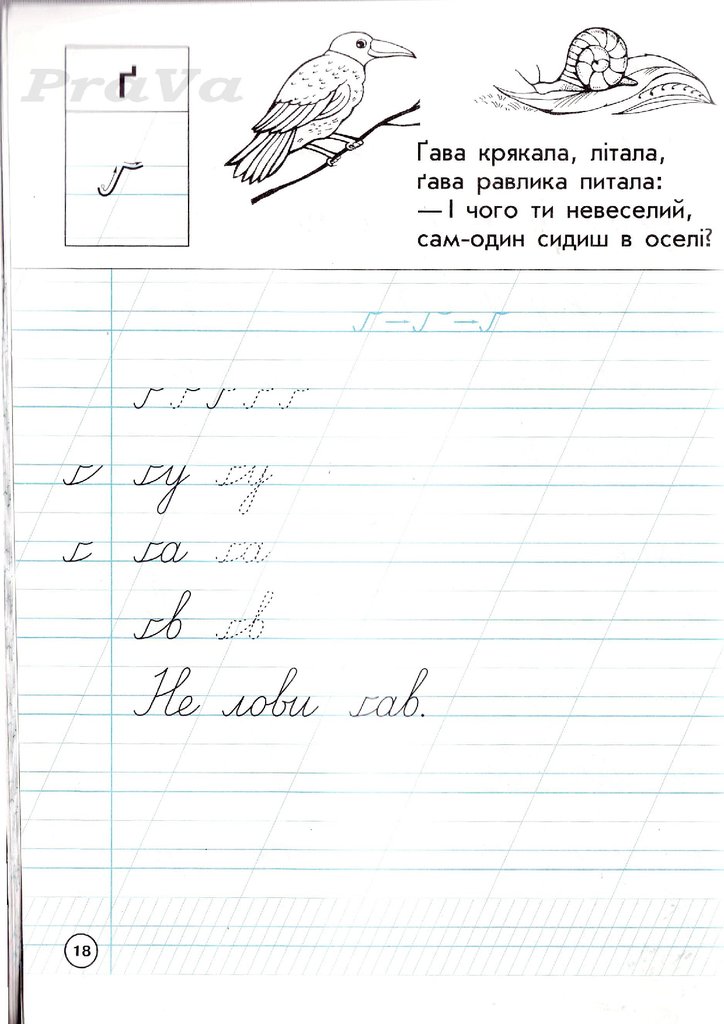 PraVa
ґ
ґ
Ґава крякала, літала,
ґава равлика питала:
— І чого ти невеселий,
сам-один сидиш в оселі?
ґ → ґ → ґ
ґ ґ ґ ґ ґ
ґ ґу ґу
ґ ґа ґа
ґв ґв
Не лови ґав.
18